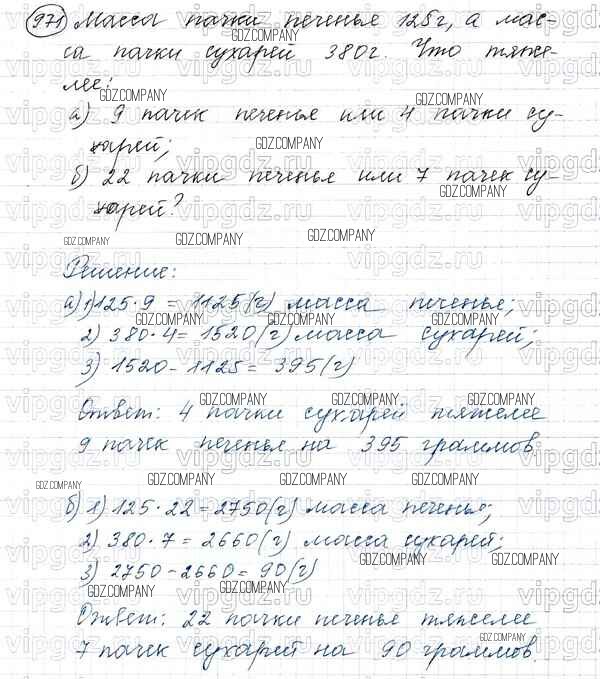 971 Масса пачки печенье 125г, а мас-
са пачки сухарей 380г. Что тяже-
лее:
а) 9 пачек печенье или 4 пачки су-
харей;
б) 22 пачки печенья или 7 пачек су-
харей?
Решение:
а) 1) 125·9 = 1125(г) масса печенье;
2) 380·4 = 1520(г) масса сухарей;
3) 1520-1125 = 395(г)
Ответ: 4 пачки сухарей тяжелее
9 пачек печенье на 395 граммов.
б) 1) 125·22 = 2750(г) масса печенье;
2) 380·7 = 2660(г) масса сухарей;
3) 2750-2660 = 90(г)
Ответ: 22 пачки печенье тяжелее
7 пачек сухарей на 90 граммов.